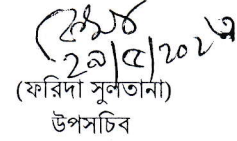 ২৯/৫/২০২৩
(ফরিদা সুলতানা)
উপসচিব